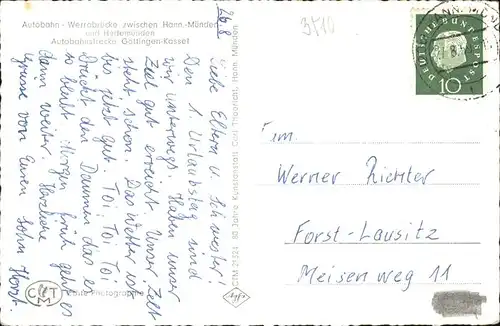 Autobahn - Werrabrücke zwischen Hann.-Münden
und Hedemünden
Autobahnstrecke Göttingen-Kassel
26.8
3510
Liebe Eltern u. Schwester!
Den 1. Urlaubstag sind
wir unterwegs. Haben unser
Ziel gut erreicht. Unser Zelt
steht schon. Das Wetter ist
bis jetzt gut. Toi Toi Toi
Drückt den Daumen das es
so bleibt. Morgen früh geht es
dann weiter. Herzliche
Grüsse von Euren Sohn Horst
CTM
Echte Photographie
CTHM 21324 80 Jahre Kunstanstalt Carl Thoericht, Hann. Münden
Agfa
DEUTSCHE BUNDESPOST
10
Fam.
Werner Richter
Forst-Lausitz
Meisenweg 11